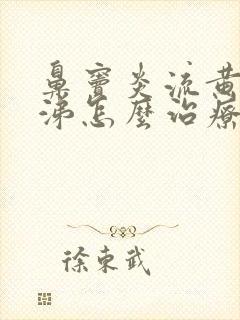 鼻竇炎流黃
涕怎麼治療
徐東武